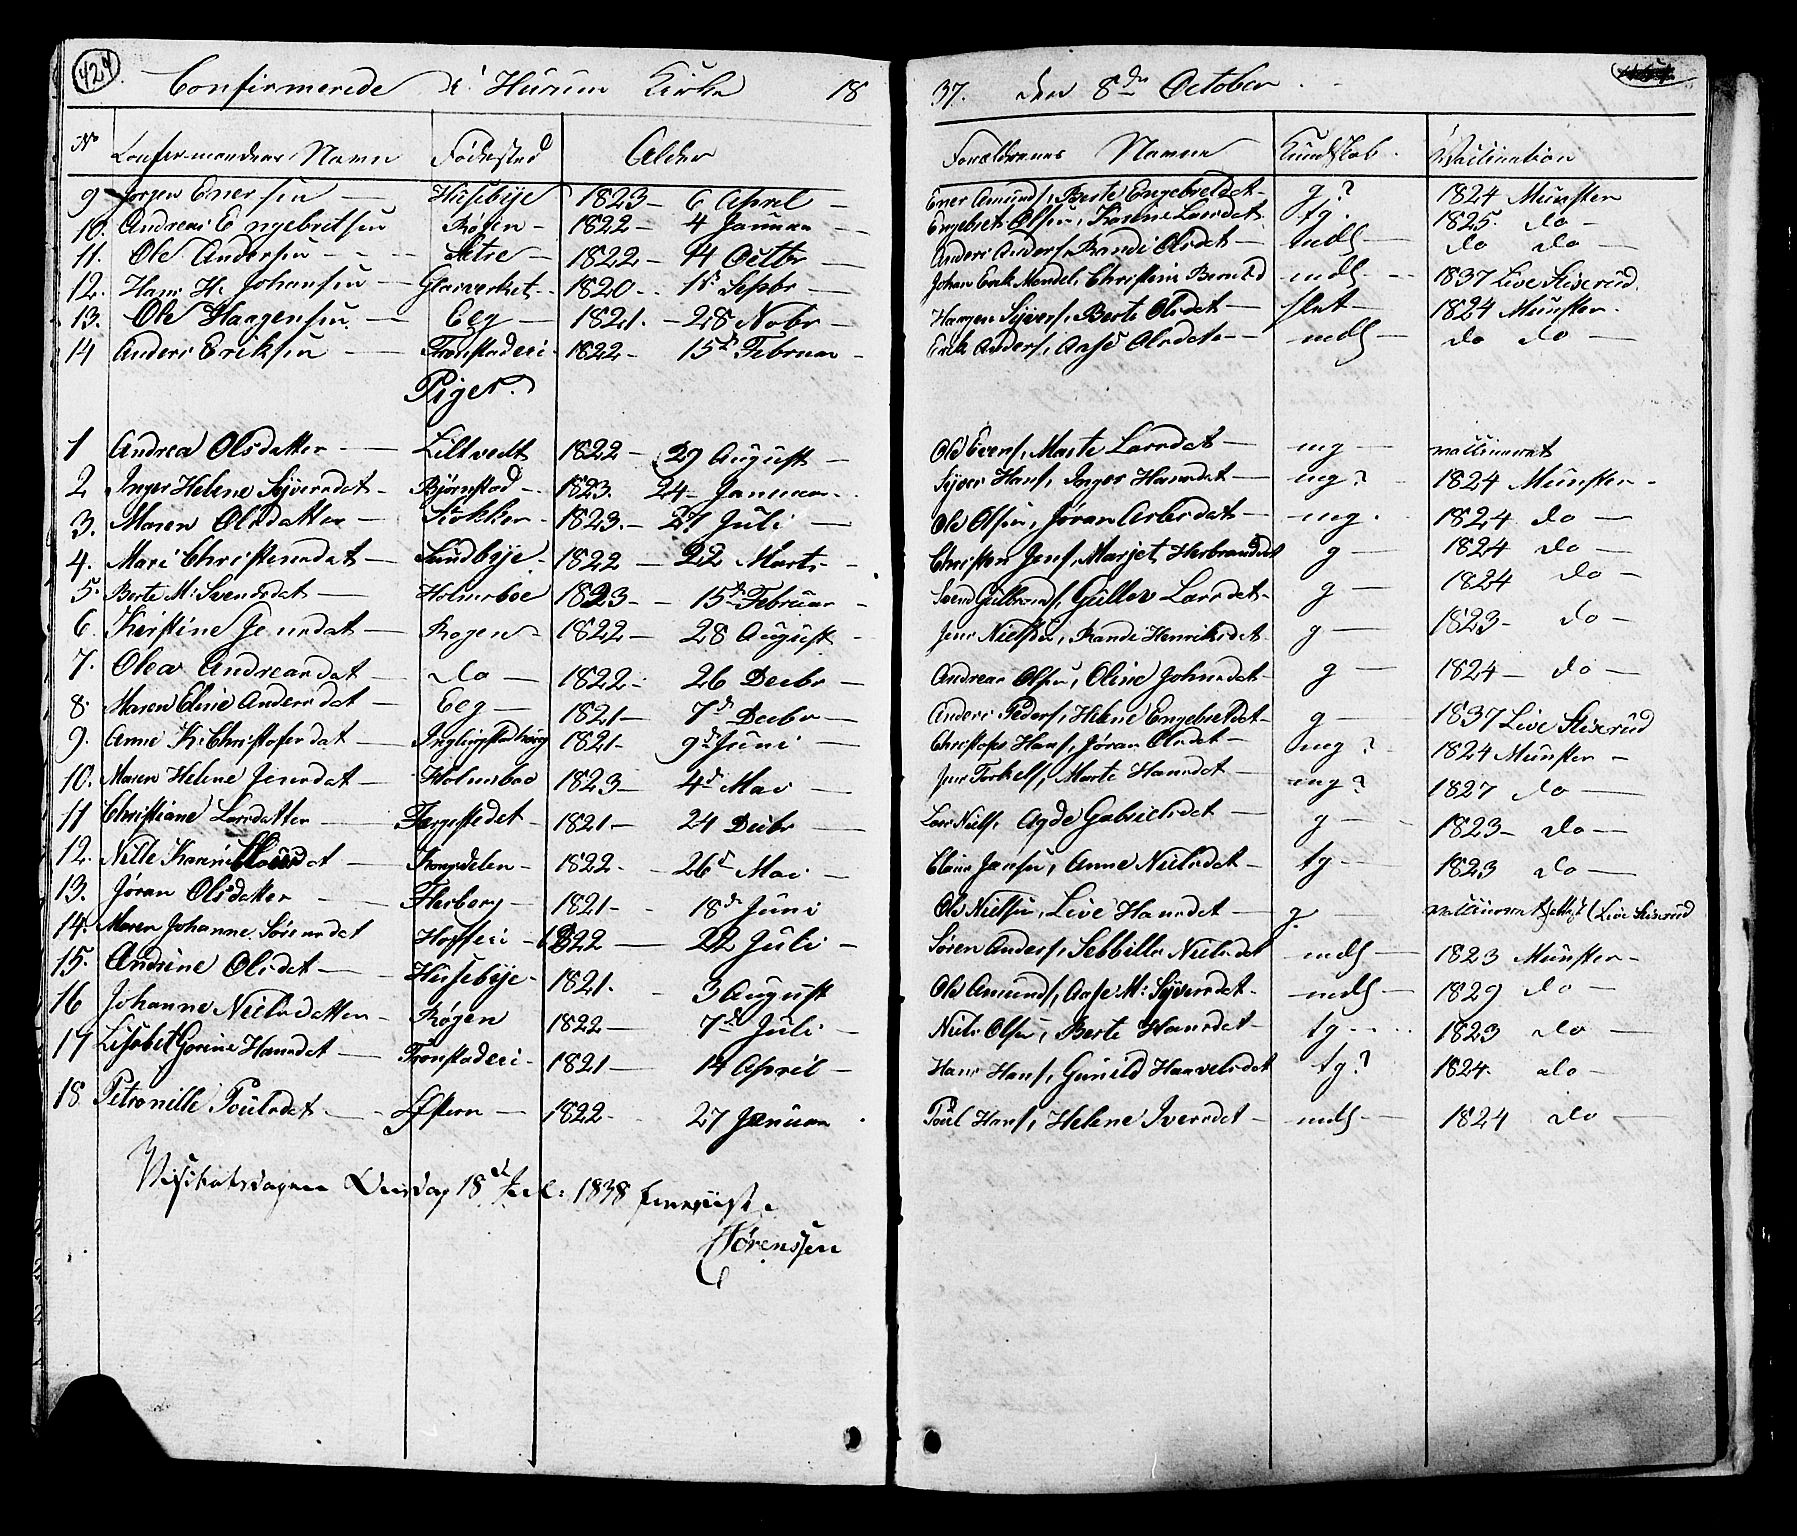 424
Confirmerede i Hurum Kirke 1837. den 8de October
No Confirmandens Navn Fødested Alder Forældrenes Navne Kundskab. Vaccination
9 Jorgen Enersen Husebye 1823 6 April Ener Amunds, Berte Engebretsdat g? 1824 Münster
10. Andreas Engebretsen Røgen 1822 4 Januar Engebret Olsen, Karine Larsdat tg. 1825. do
11. Ole Andersen Sætre 1822 14 Octbr Anders Anders, Randi Olsdat mdl do do
12. Hans H. Johansen Glasverket 1820 1st Sepbr Johan Erik Mendel, Christine Berntsd mdl 1837 Live Stixrud.
13. Ole Haagensen Eeg 1821. 28 Nobr Haagen Syvers, Berte Olsdat slet 1824 Münster.
14 Anders Eriksen Tronstaderi 1822 15de Februar Erik Anders, Aase Olsdat mdl do do
Piger.
1 Andrea Olsdatter Liltvedt 1822 29 August Ole Evens, Marte Larsdat mg vaccineret
2 Inger Helene Syversdat Bjørnstad 1823. 24 Januar Syver Hans, Inger Hansdat mg? 1824 Münster
3. Maren Olsdatter Stokker 1823. 27 Juli Ole Olsen, Jøran Arbesdat mg. 1824 do
4. Mari Christensdat Sundbye 1822 22 Marts Christen Jens, Marjet Herbrandsdat g 1824 do
5. Berte M: Svendsdat Holmsboe 1823 15de Februar Svend Gulbrands, Gullov Larsdat g 1824 do
6. Kirstine Jensdat Rogen 1822 28 August Jens Nielsen, Randi Henriksdat g 1823 do
7. Olea Andreasdat do 1822 26 Decbr Andreas Olsen, Oline Johnsdat g 1824 do
8. Maren Eline Andersdat Eeg 1821 7d Decbr Anders Peders, Helene Engebretsdat g 1837 Live Stixrud
9. Anne K. Christofersdat Inglingstadberg 1821 9d Juni Christopher Hans, Jøran Olsdat mg? 1824 Münster
10. Maren Helene Jensdat Holmsboe 1823 4d Mai Jens Torkels, Marte Hansdat mg? 1827 do
11 Christiane Larsdatter Færgestedet 1821 24 Decbr Lars Niels, Agde Gabrielsdat g 1823 do
12. Nille Karine Clausdat Kongsdelen 1822 26d Mai Claus Jansen, Anne Nielsdat tg 1823 do
13. Jøran Olsdatter Herberg 1821 18de Juni Ole Nielsen, Live Hansdat g. vaccineret (Live Stixrud
14. Maren Johanne Sørensdat Hofferi 1822 22 Juli Søren Anders, Sebbille Nielsdat mdl 1823 Münster
15. Andrine Olsdat Husebye 1821. 3 August Ole Amunds, Aase M: Syversdat mdl 1829 do
16 Johanne Nielsdatter Røgen 1822 7de Juli Niels Olsen, Berte Hansdat tg 1823 do
17 Lisabet Gorine Hansdat Tronstaderi 1821 14 April Hans Hans, Gunild Haavelsdat tg? 1824. do
18 Petronille Poulsdat Østern 1822 27 Januar Poul Hans, Helene Iversdat mdl 1824 do
Visitatsdagen 18d 1838
Sørenssen